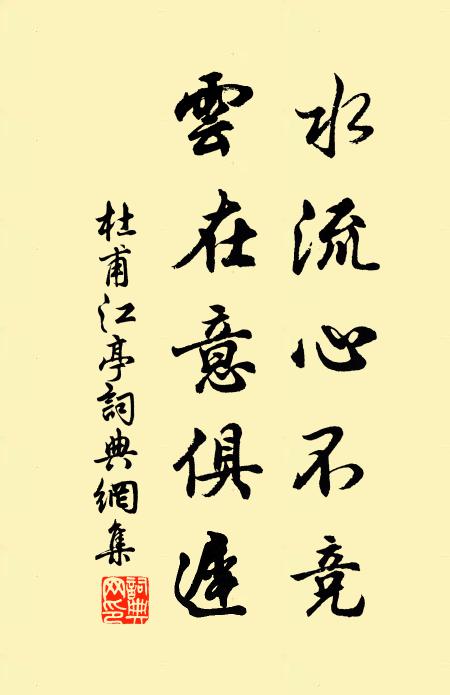 水流心不竞
雲在意俱遲
杜甫江亭詞典網集
詞典网印